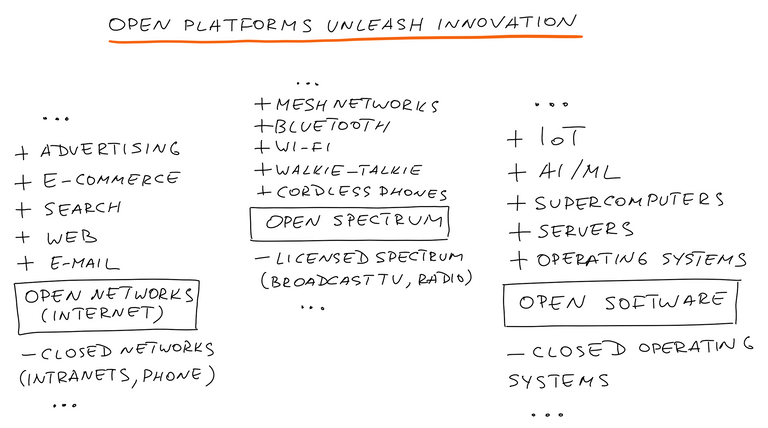 OPEN PLATFORMS UNLEASH INNOVATION
...
+ ADVERTISING
+ E-COMMERCE
+ SEARCH
+ WEB
+ E-MAIL
OPEN NETWORKS
(INTERNET)
- CLOSED NETWORKS
(INTRANETS, PHONE)
...
...
+ MESH NETWORKS
+ BLUETOOTH
+ WI-FI
+ WALKIE-TALKIE
+ CORDLESS PHONES
OPEN SPECTRUM
- LICENSED SPECTRUM
(BROADCAST TV, RADIO)
...
...
+ IoT
+ AI/ML
+ SUPERCOMPUTERS
+ SERVERS
+ OPERATING SYSTEMS
OPEN SOFTWARE
- CLOSED OPERATING
SYSTEMS
...